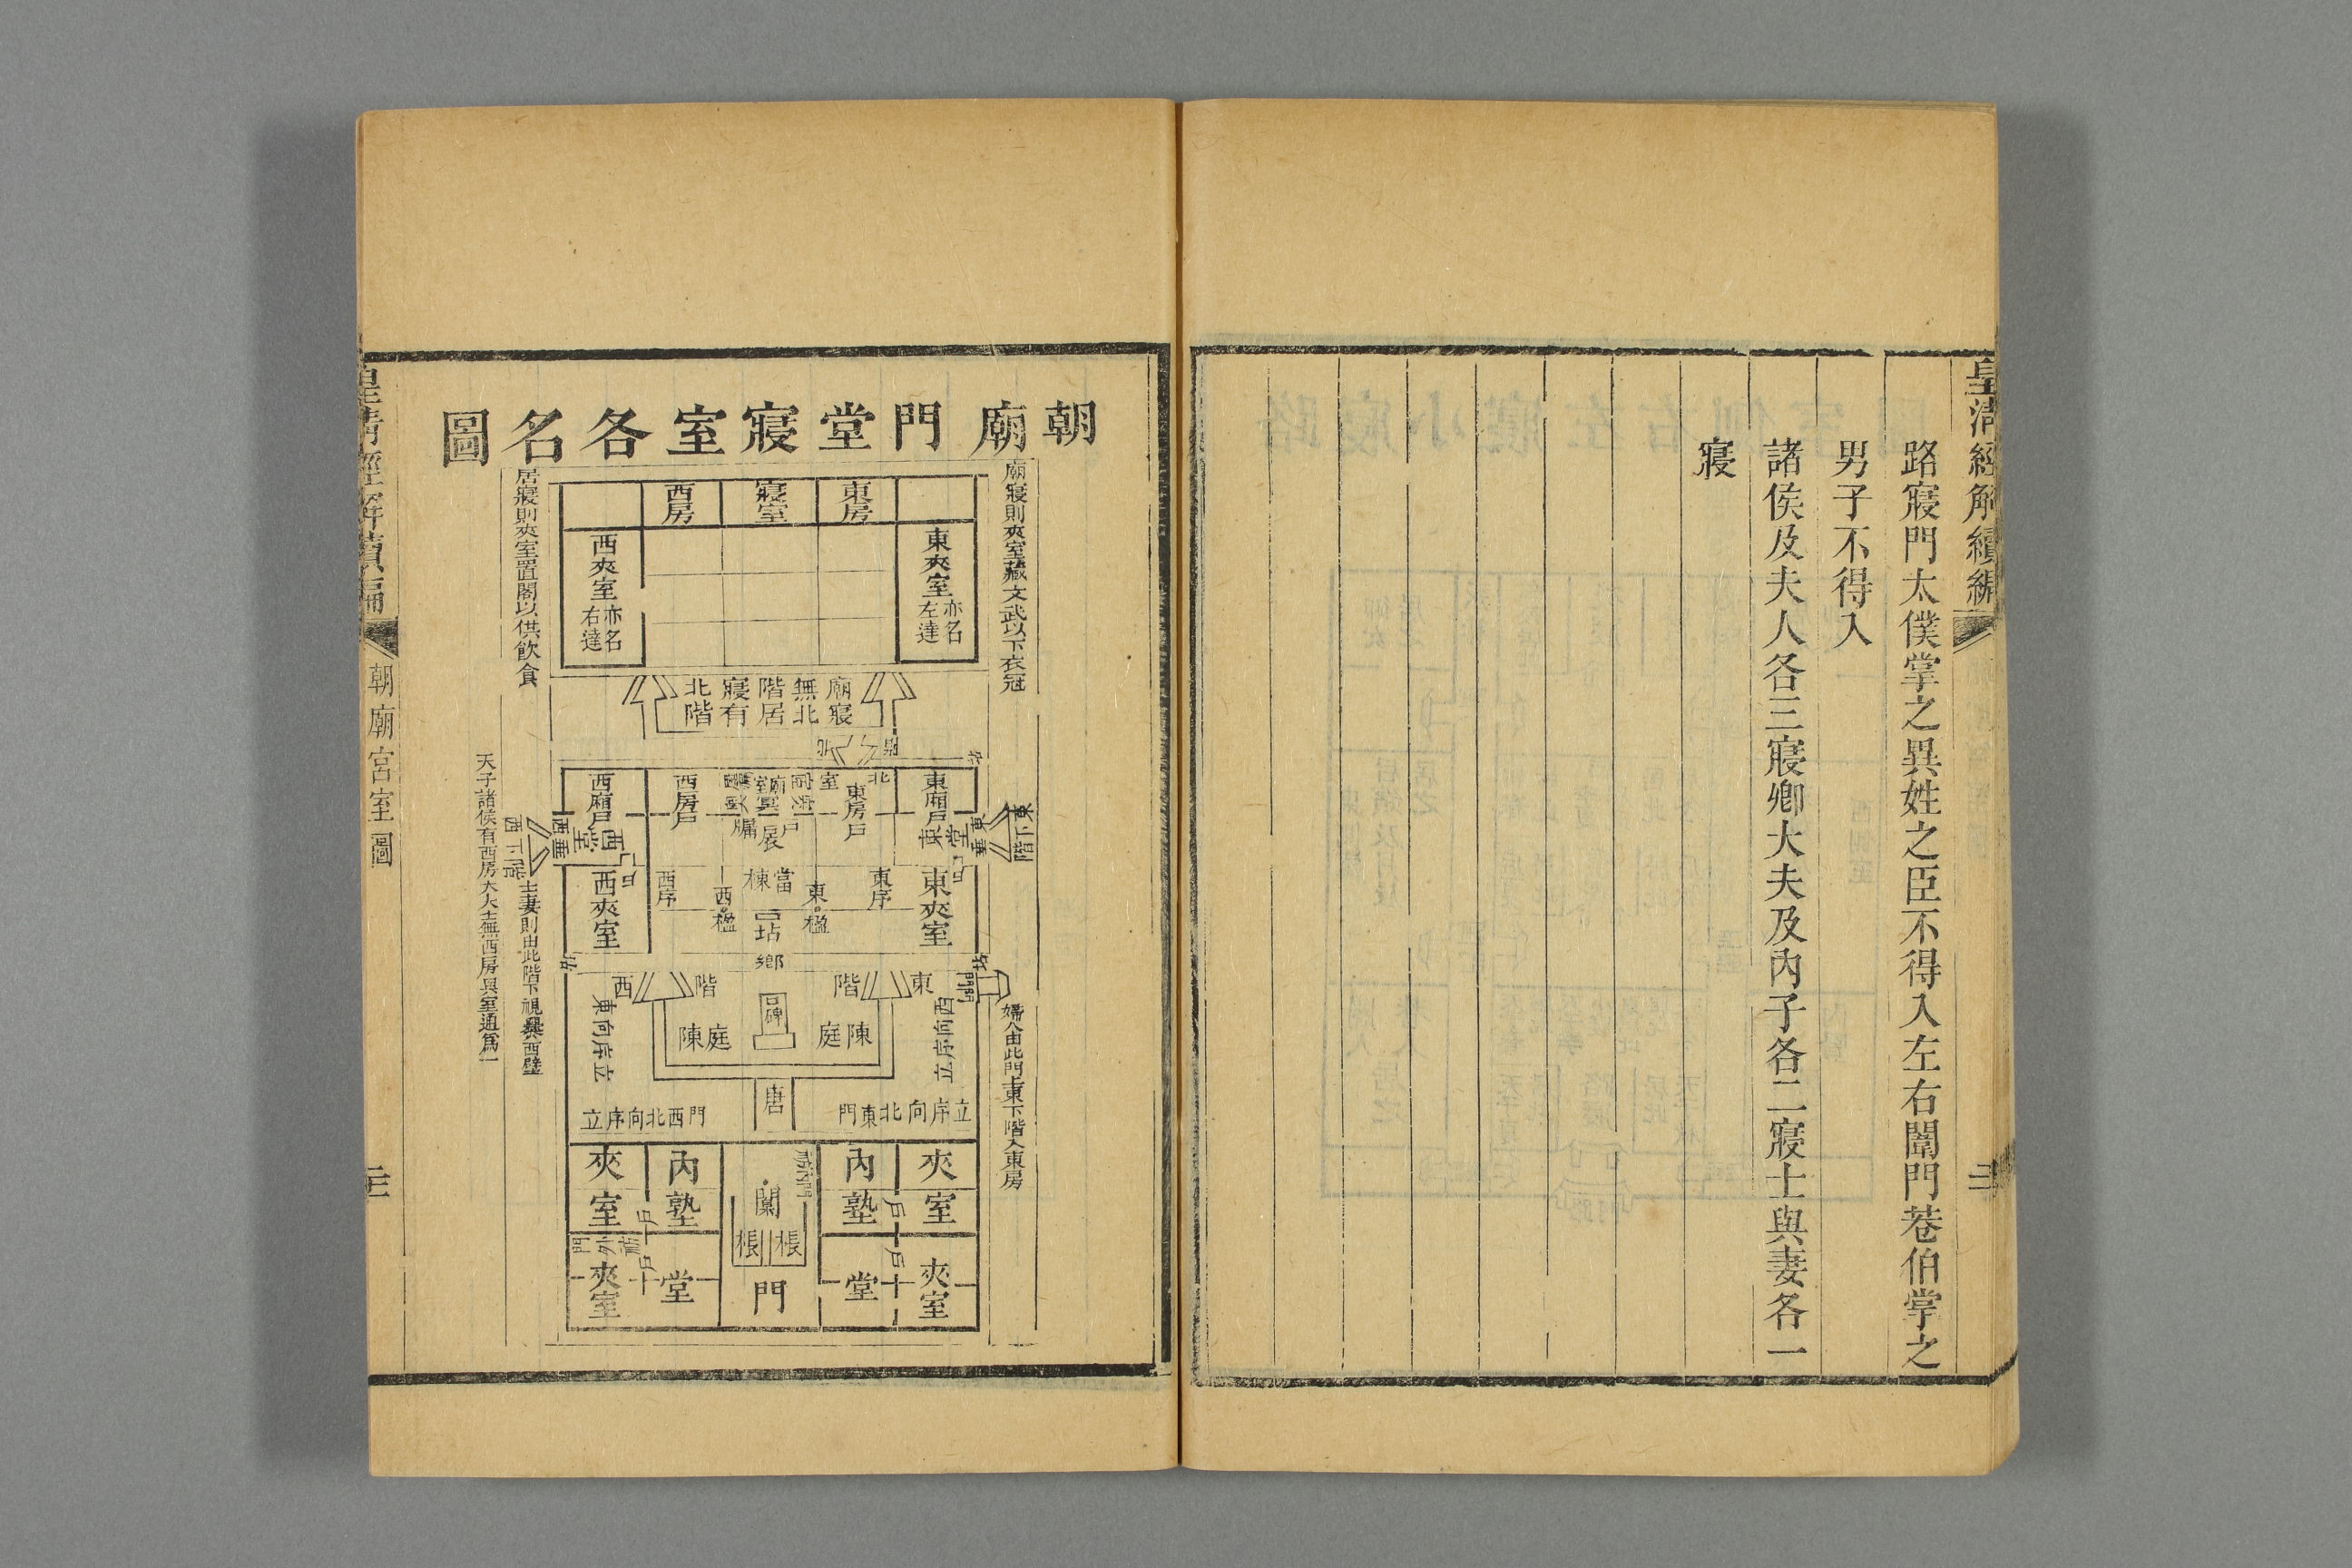 皇清經解續編
路寢門太僕掌之異姓之臣不得入左右闈門巷伯掌之
男子不得入
諸侯及夫人各三寢卿大夫及內子各二寢士與妻各一
寢
三
朝廟門堂寢室各名圖
廟寢則夾室藏文武以下衣冠
東房
寢室
西房
東夾室亦名左達
西夾室亦名右達
居寢則夾室置閣以供飲食
廟寢無北階居寢有北階
東廂戶
東房戶
北
室
西房戶
西廂戶
戶
扆
牖
東堂
東垂
東下階
西堂
西垂
西下階
東夾室
東序
東楹
當棟
西楹
西序
西夾室
坫
鄉
東階
西階
闈門
碑
庭陳
陳庭
西向序立
東向序立
唐
門東北向序立
門西北向序立
婦人由此門上東下階入東房
士妻則由此階下視爨西壁
天子諸侯有西房大夫士無西房與室通為一
夾室
內塾
闑
棖
棖
內塾
夾室
戶
戶
戶
戶
夾室
堂
門
堂
夾室
皇清經解續編
朝廟宮室圖
三